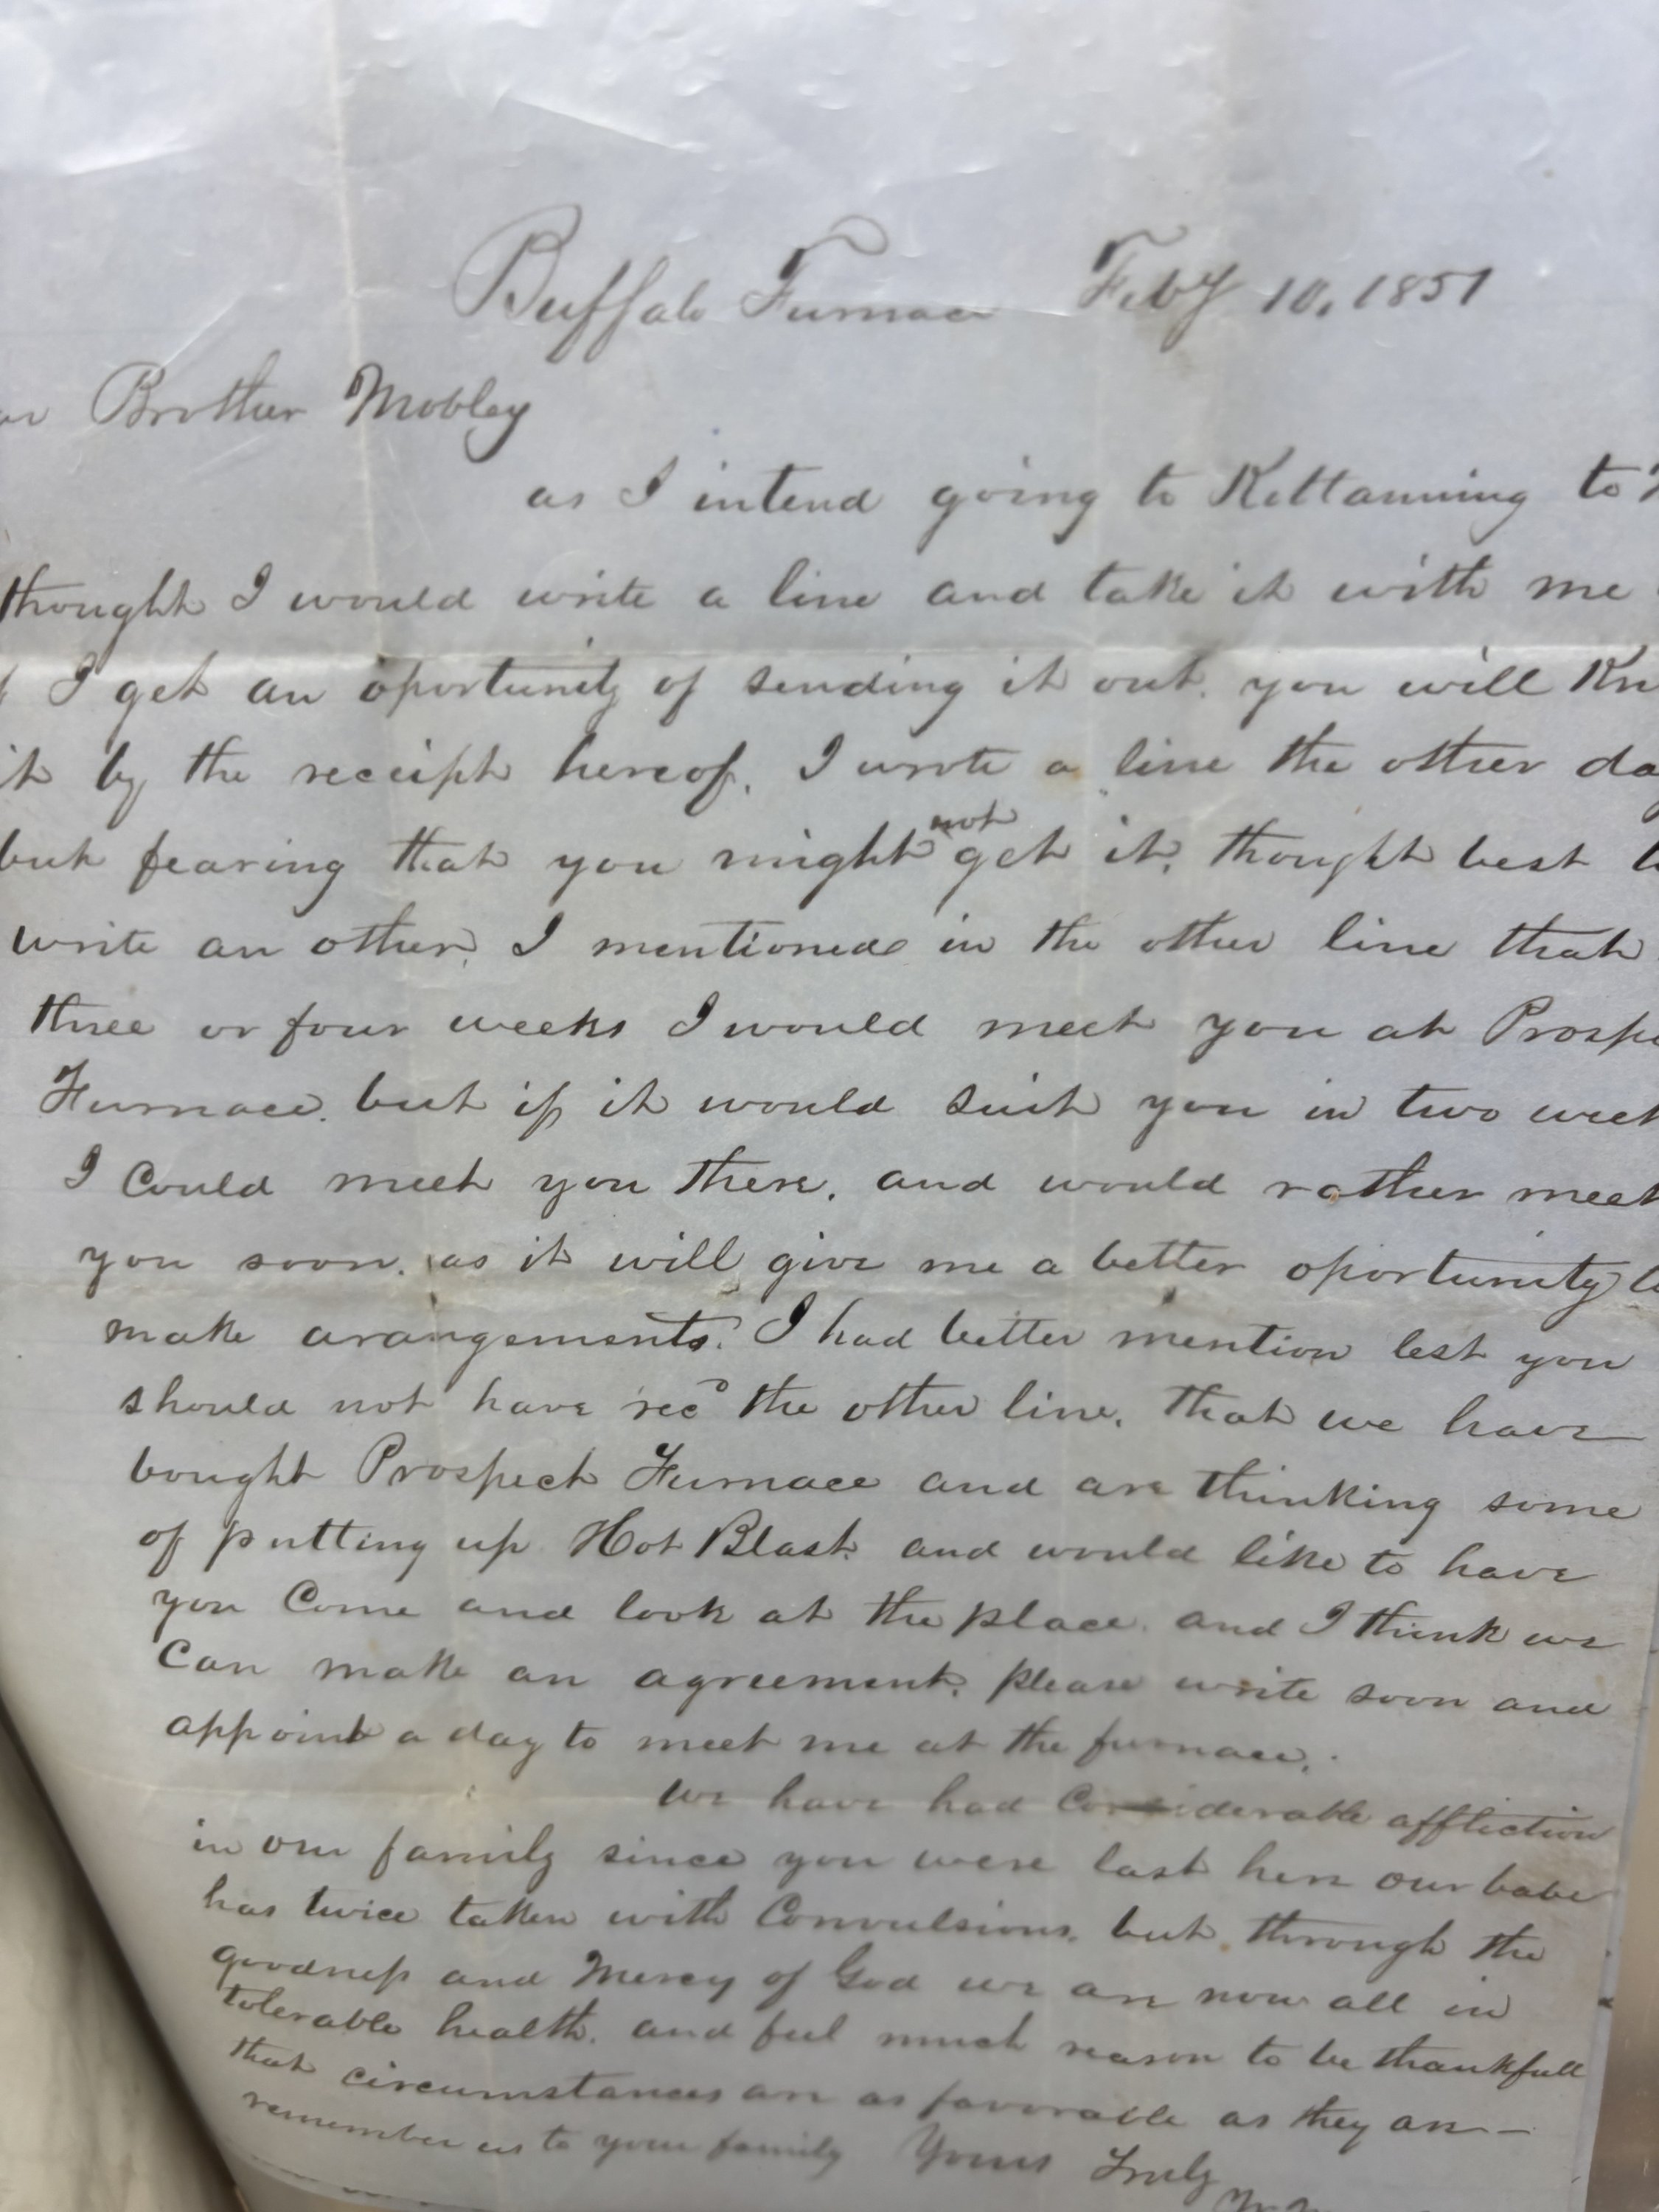 Buffalo Furnace Feby 10, 1851
Brother Mobley
as I intend going to Kittanning to
thought I would write a line and take it with me
I get an oportunity of sending it out. you will Kn
it by the receipt hereof. I wrote a line the other da
but fearing that you might not get it, thought best
write an other, I mentioned in the other line that
three or four weeks I would meet you at Prospe
Furnace. but if it would suit you in two week
I Could meet you there. and would rather meet
you soon. as it will give me a better oportunity to
make arangements. I had better mention lest you
should not have recd the other line. that we have
bought Prospect Furnace and are thinking some
of putting up Hot Blast. and would like to have
you Come and look at the place. and I think we
Can make an agreement. please write soon and
appoint a day to meet me at the furnace.
we have had Considerable affliction
in our family since you were last here our babe
has twice taken with Convulsions. but through the
goodness and Mercy of God we are now all in
tolerable health. and feel much reason to be thankfull
that circumstances are as favorable as they are —
remember us to your family Yours Truly